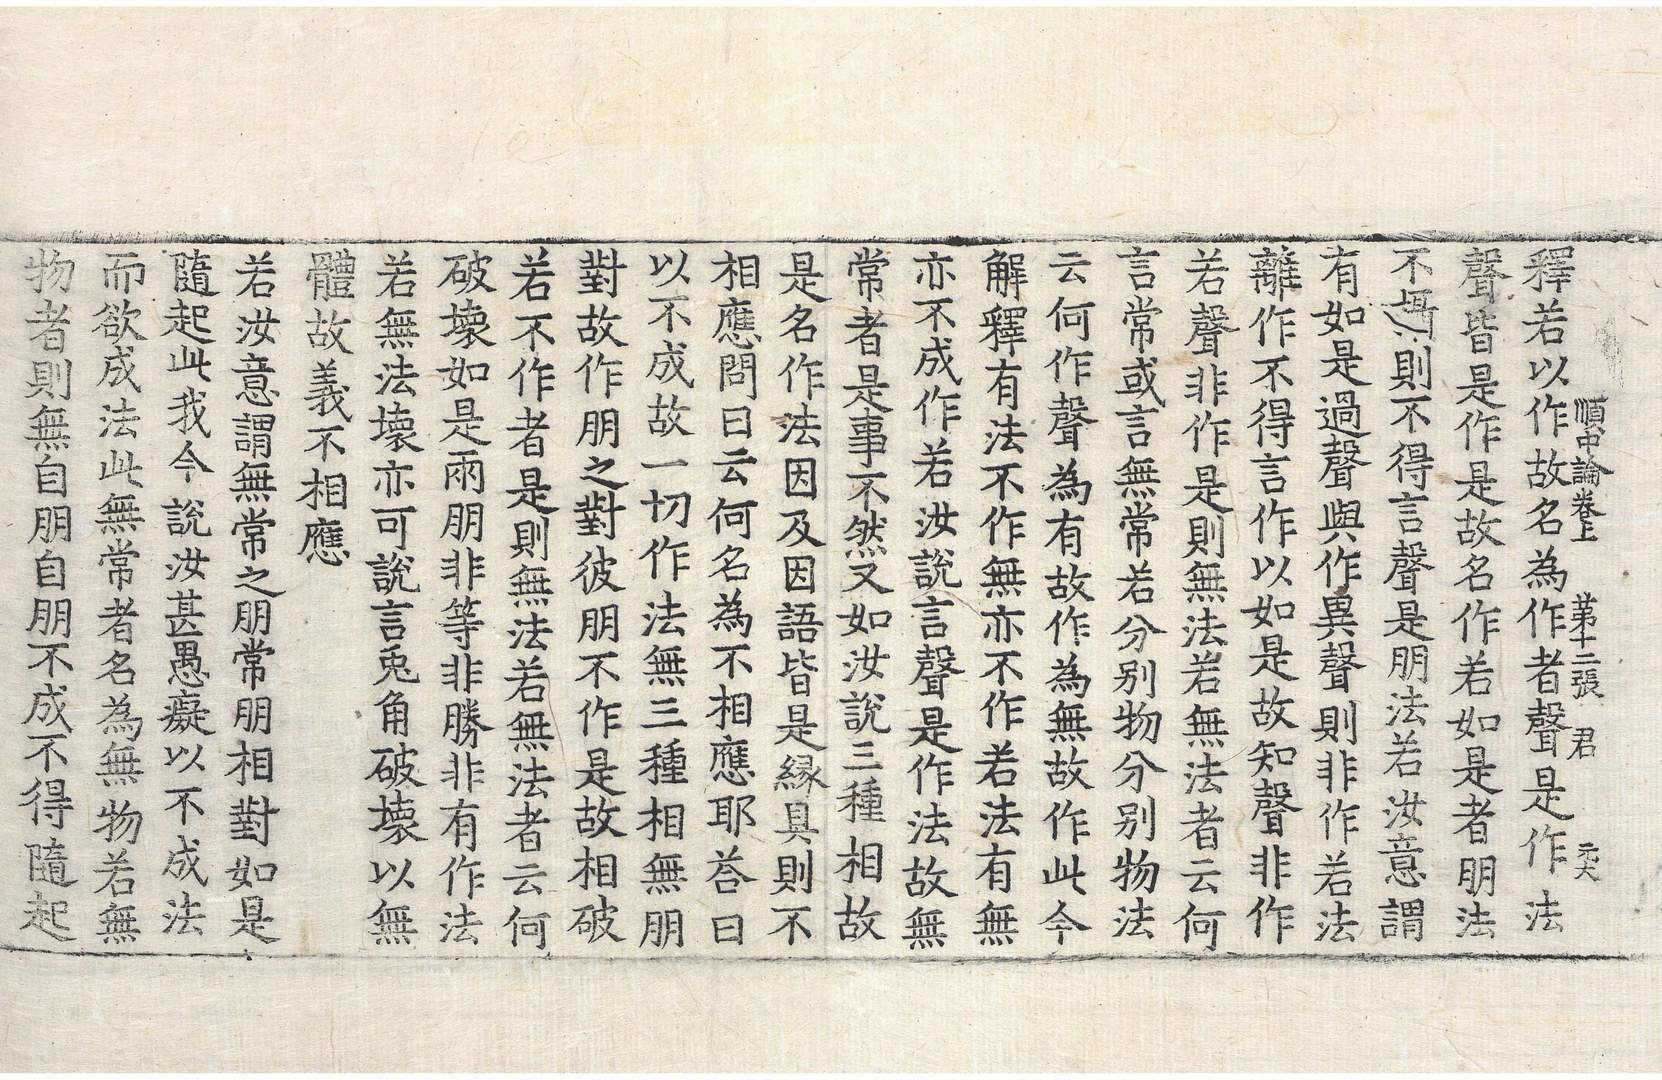 順中論卷上 第十二張 君
釋若以作故名為作者聲是作法
聲皆是作是故名作若如是者朋法
不𭣣則不得言聲是朋法若汝意謂
有如是過聲與作異聲則非作若法
離作不得言作以如是故知聲非作
若聲非作是則無法若無法者云何
言常或言無常若分別物分別物法
云何作聲為有故作為無故作此今
解釋有法不作無亦不作若法有無
亦不成作若汝說言聲是作法故無
常者是事不然又如汝說三種相故
是名作法因及因語皆是緣具則不
相應問曰云何名為不相應耶荅曰
以不成故一切作法無三種相無朋
對故作朋之對彼朋不作是故相破
若不作者是則無法若無法者云何
破壞如是兩朋非等非勝非有作法
若無法壞亦可說言兎角破壞以無
體故義不相應
若汝意謂無常之朋常朋相對如是
隨起此我今說汝甚愚癡以不成法
而欲成法此無常者名為無物若無
物者則無自朋自朋不成不得隨起